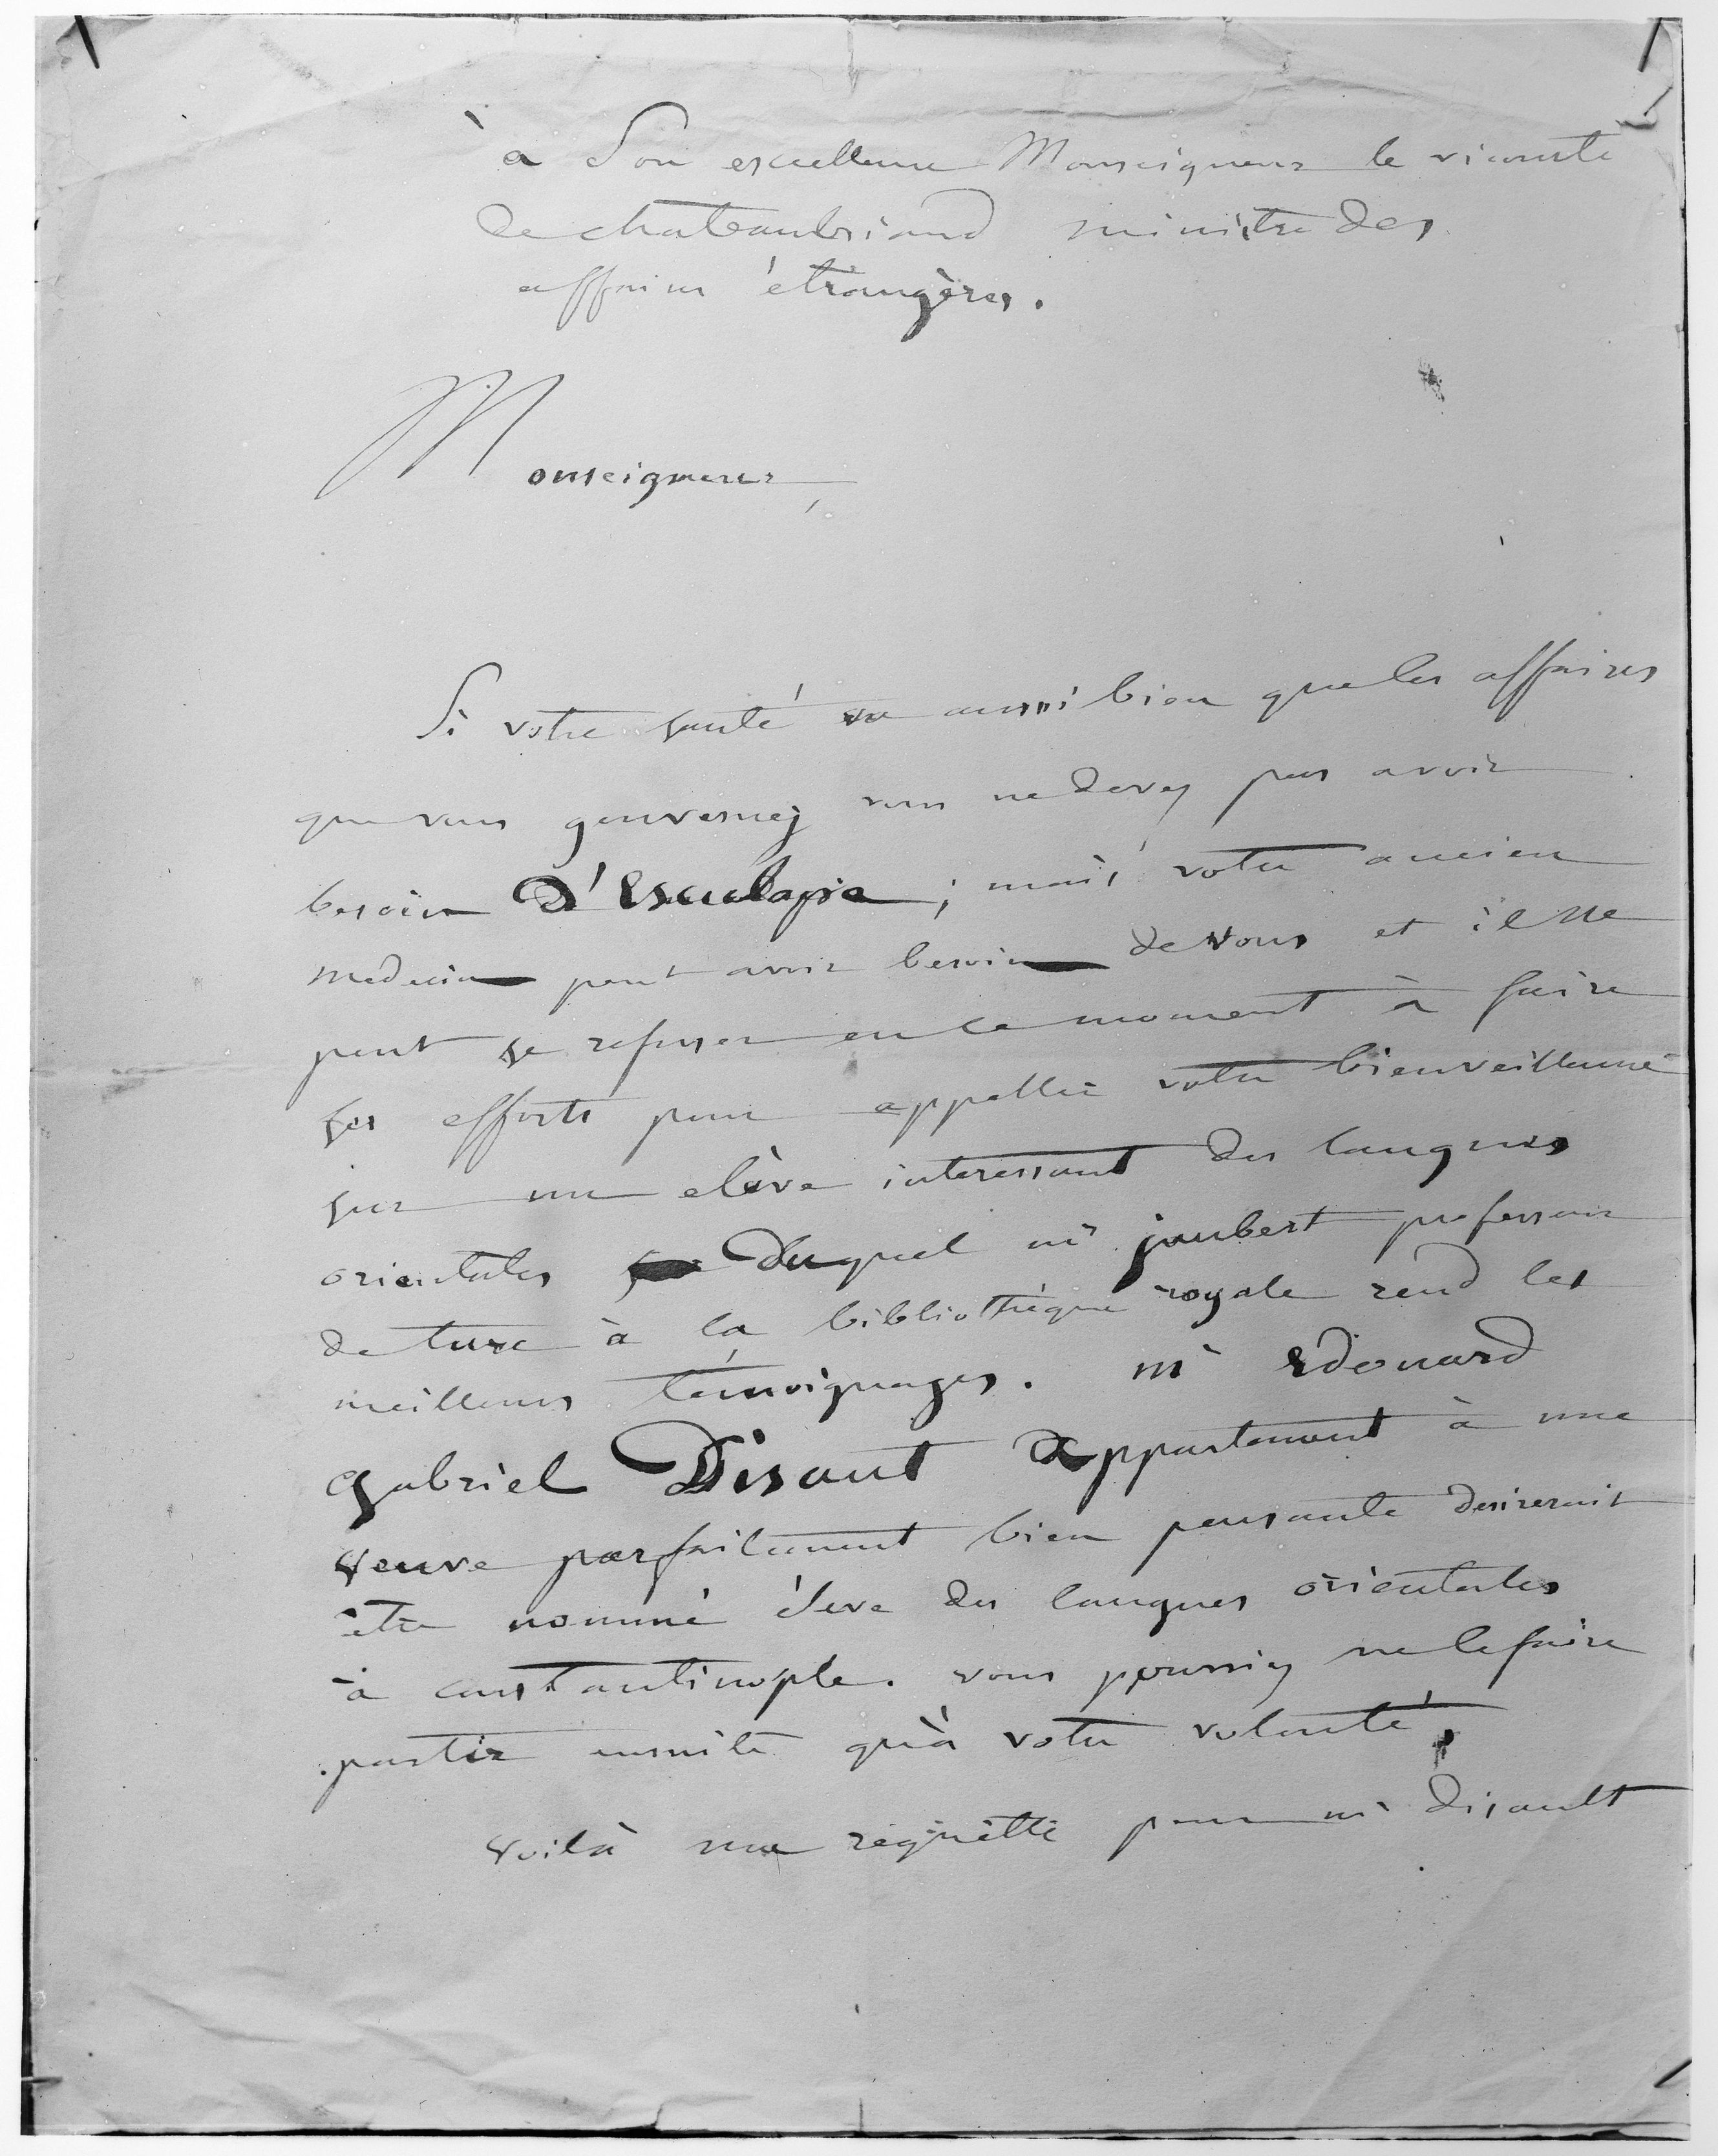 à Son excellence Monseigneur le vicomte
de chateaubriand ministre des
affaires étrangères.
Monseigneur,
Si votre santé va aussi bien que les affaires
que vous gouvernez vous ne devez pas avoir
besoin D'Esculape ; mais votre ancien
medecin peut avoir besoin de vous et il ne
peut se refuser en ce moment à faire
ses efforts pour appeller votre bienveillance
sur un elève interessant des langues
orientales duquel mr joubert professeur
de turc à la bibliothèque royale rend les
meilleurs témoignages. mr Edouard
gabriel Disant appartenant à une
veuve parfaitement bien pensante desireroit
être nommé élève des langues orientales
à constantinople. vous pourriez ne le faire
partir ensuite qu'à votre volonté,
voilà ma requètte pour mr disault